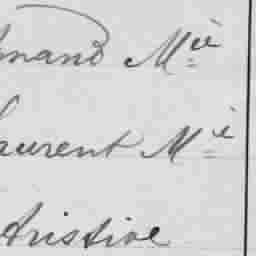 nand Mie
aurent Mie
Aristide